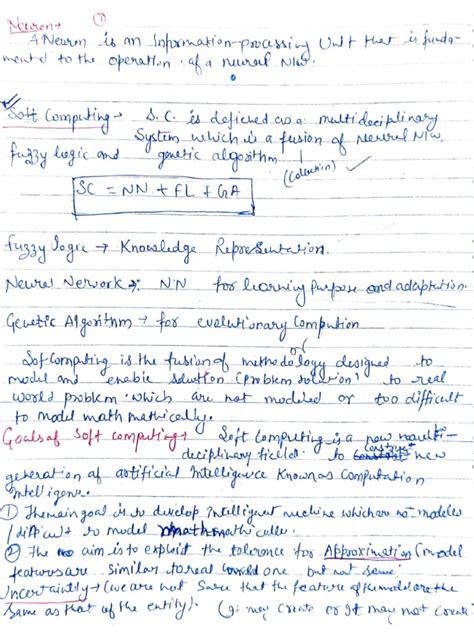 Neuron → ①
A Neuron is an Information-processing Unit that is funda-
mental to the operation of a neural N/W.
Soft Computing → S.C. is deficied as a multideciplinary
System which is a fusion of Neural N/W,
fuzzy logic and genetic algorithm
(Collection) ✓
SC = NN + FL + GA
fuzzy logic → Knowledge Representation.
Neural Network → N.N for learning purpose and adaptation.
Genetic Algorithm → for evolutionary Compution
or
Soft Computing is the fusion of methodology designed to
model and enable solution (problem solution) to real
world problem which are not modeled or too difficult
to model mathmethically.
Goals of Soft computing → Soft Computing is a new multi-
deciplinary field to construct new
generation of artificial Intelligence Known as Computation
Intelligence.
① The main goal is to develop Intelligent machine which are no- modeles
/ difficult to model mathmathically.
② The aim is to exploit the tolerence for Approximation (model
features are similar to real world one but not same
Incertainity → (we are not Sure that the feature of the model are the
same as that of the entity). (it may Create or It may not Create